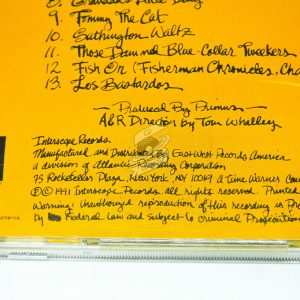 8. Grandad's Little Ditty
9. Tommy The Cat
10. Sathington Waltz
11. Those Damned Blue-Collar Tweekers
12. Fish On (Fisherman Chronicles, Cha
13. Los Bastardos
Produced By Primus
A&R Direction by Tom Whalley
Interscope Records
Manufactured and Distributed By EastWest Records America
a division of Atlantic Recording Corporation
75 Rockefeller Plaza, New York, NY 10019 A Time Warner Com
©℗ 1991 Interscope Records. All rights reserved. Printed
Warning: Unauthorized reproduction of this recording is Pr
by Federal Law and Subject to Criminal Prosecution
america